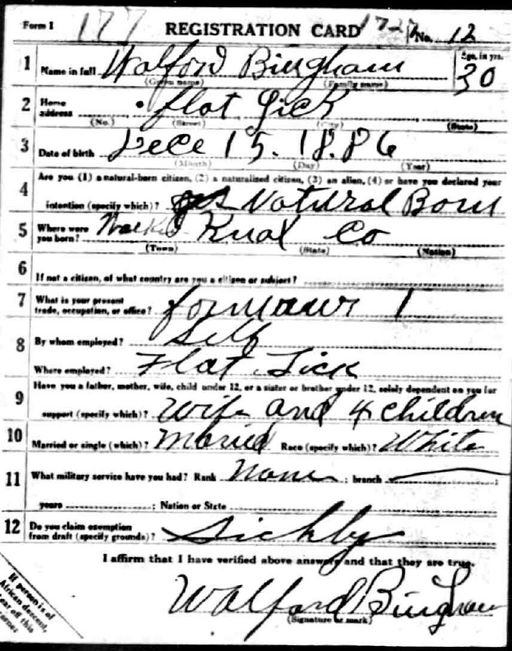 Form 1 177 REGISTRATION CARD No. 12
1 Name in full Walford Bingham Age, in yrs. 30
(Given name) (Family name)
2 Home address Flat Lick
(No.) (Street) (City) (State)
3 Date of birth Dece 15. 18.86
(Month) (Day) (Year)
Are you (1) a natural-born citizen, (2) a naturalized citizen, (3) an alien, (4) or have you declared your
4 intention (specify which)? Natural Born
5 Where were you born? Knox Co
(Town) (State) (Nation)
6 If not a citizen, of what country are you a citizen or subject?
7 What is your present trade, occupation, or office?
8 By whom employed? Self
Where employed? Flat Lick
9 Have you a father, mother, wife, child under 12, or a sister or brother under 12, solely dependent on you for
support (specify which)? Wife and 4 children
10 Married or single (which)? Maried Race (specify which)? White
11 What military service have you had? Rank None ; branch ;
years ; Nation or State
12 Do you claim exemption from draft (specify grounds)? Sickly
I affirm that I have verified above answers and that they are true.
Walford Bingham
(Signature or mark)
If person is of
African descent,
tear off this
corner